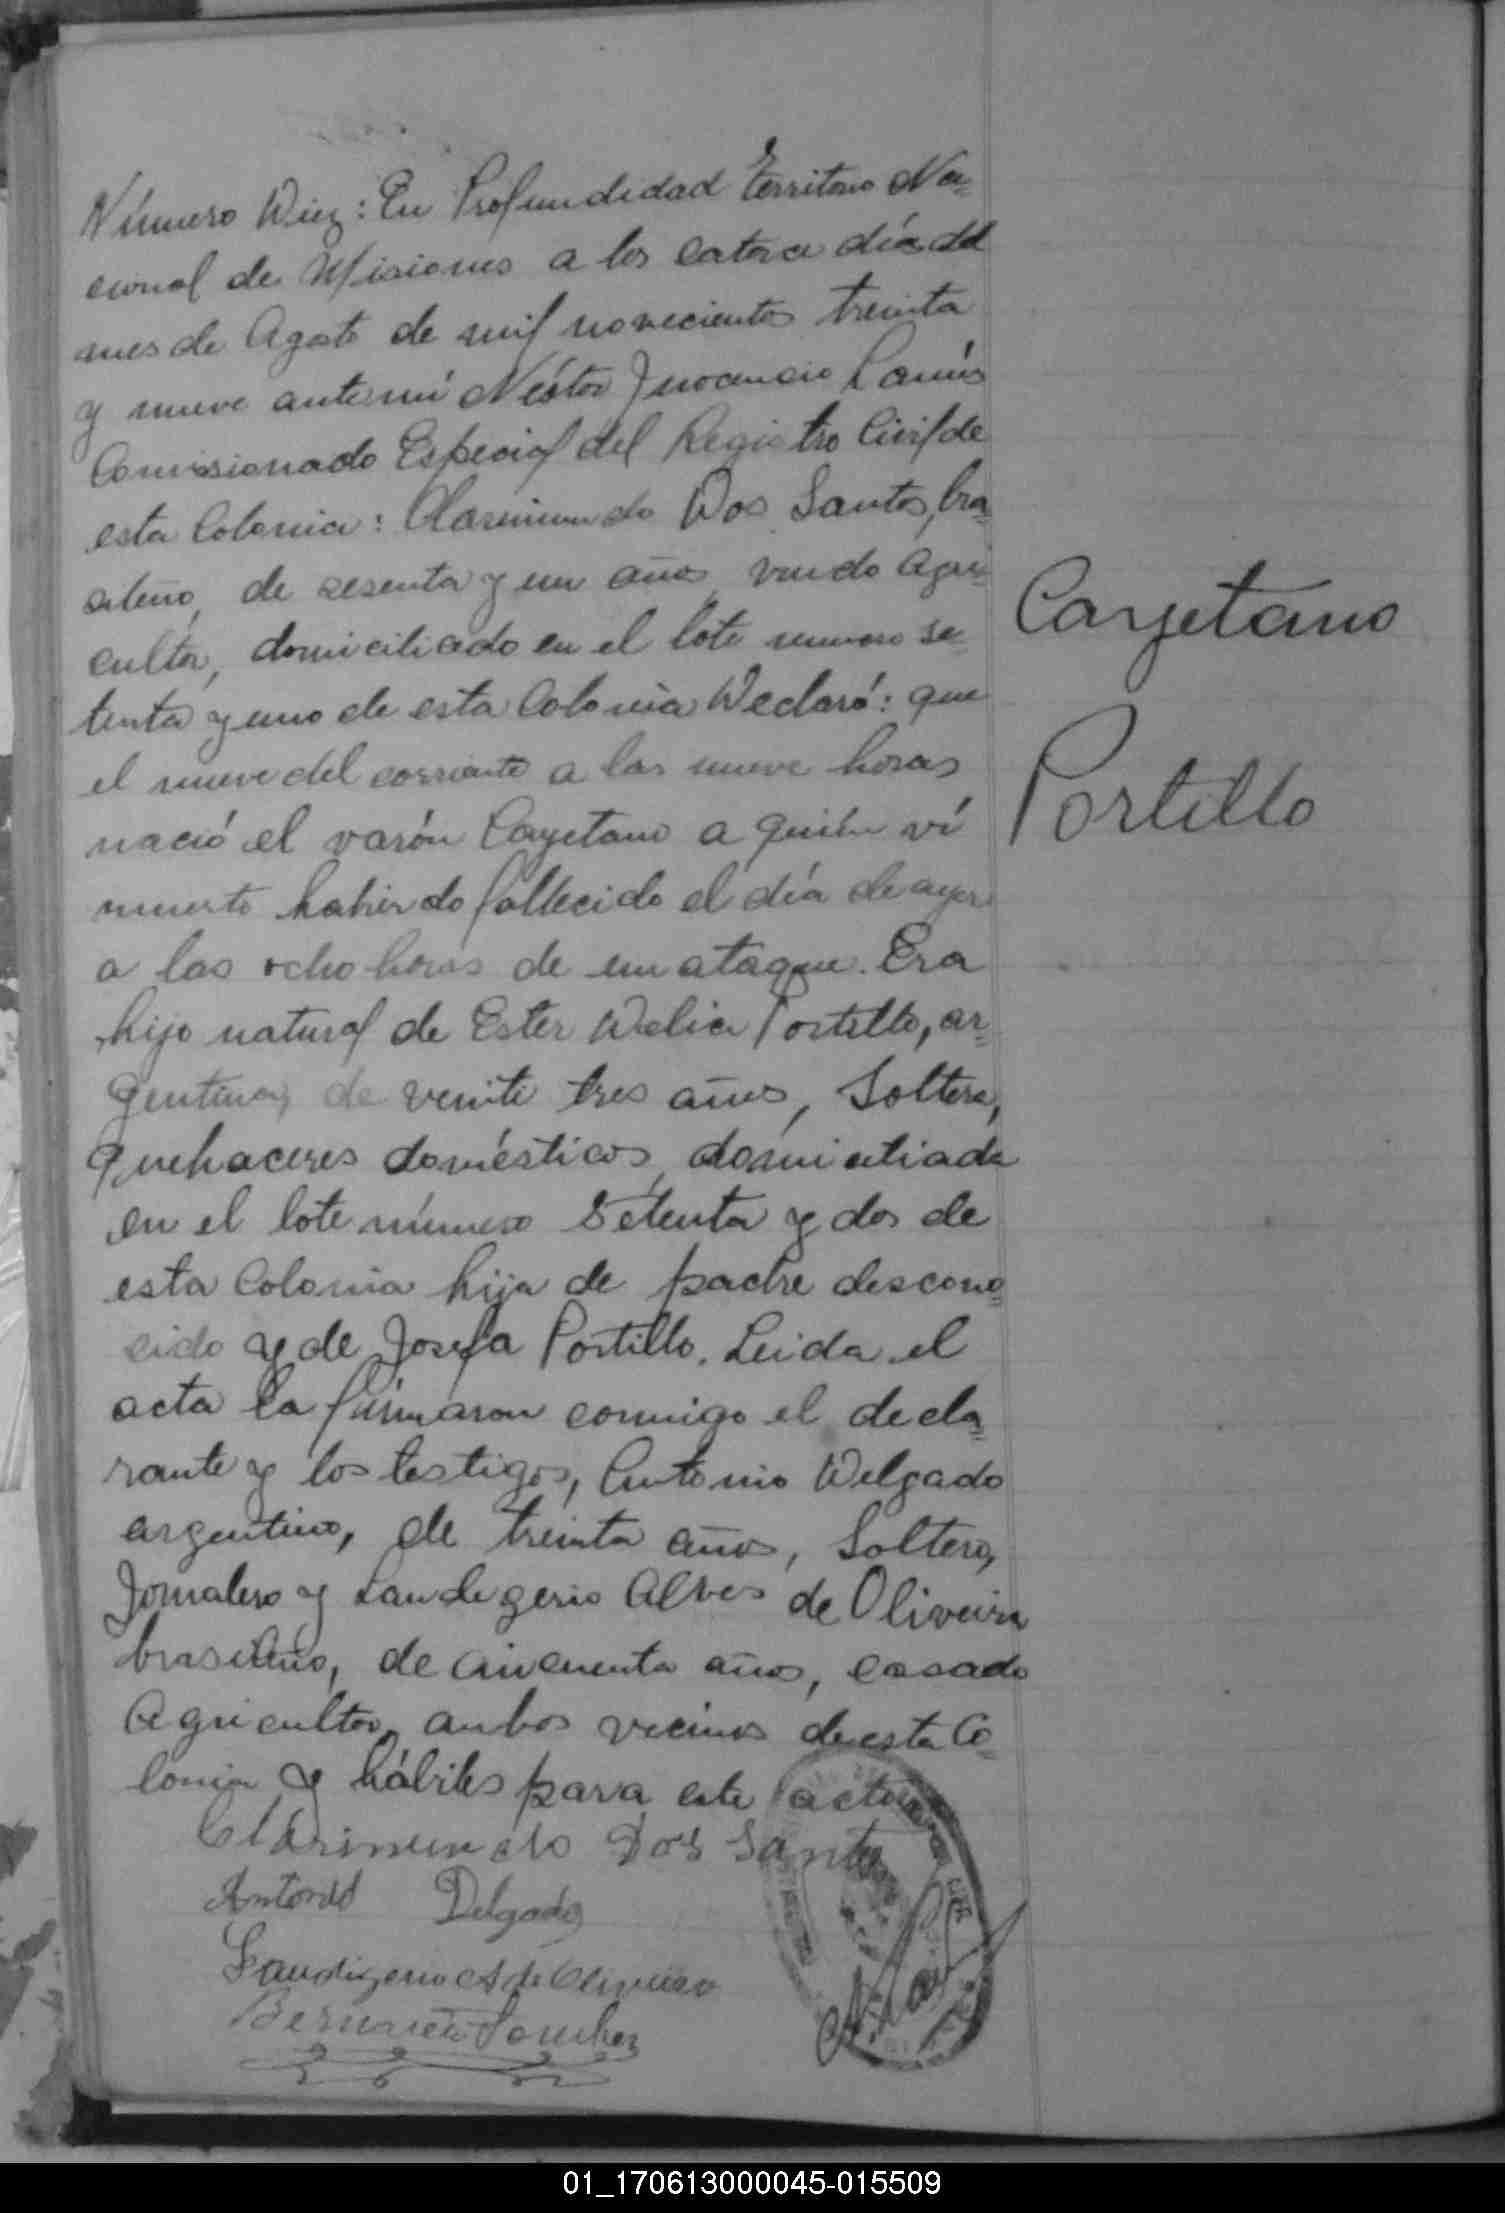 Número Diez: En Profundidad Territorio Na=
cional de Misiones a los catorce días del
mes de Agosto de mil novecientos treinta
y nueve ante mí Néstor Inocencio Lanús
Comisionado Especial del Registro Civil de
esta Colonia: Clarimundo Dos Santos, bra=
sileño, de sesenta y un años, viudo Agri=
cultor, domiciliado en el lote número se=
tenta y uno de esta Colonia Declaró: que
el nueve del corriente a las nueve horas
nació el varón Cayetano a quién ví
muerto habiendo fallecido el día de ayer
a las ocho horas de un ataque. Era
hijo natural de Ester Delia Portillo, ar=
gentina, de veinte tres años, Soltera,
quehaceres domésticos, domiciliada
en el lote número Setenta y dos de
esta Colonia hija de padre descono=
cido y de Josefa Portillo. Leida el
acta la firmaron conmigo el decla=
rante y los testigos, Antonio Delgado
argentino, de treinta años, Soltero,
Jornalero y Laudigerio Alves de Oliveira
brasileño, de cincuenta años, casado
Agricultor, ambos vecinos de esta Co=
lonia y hábiles para este acto
Clarimundo Dos Santo
Antonio Delgado
Laudigerio A de Oliveira
Sanchez
Cayetano
Portillo
01_170613000045-015509